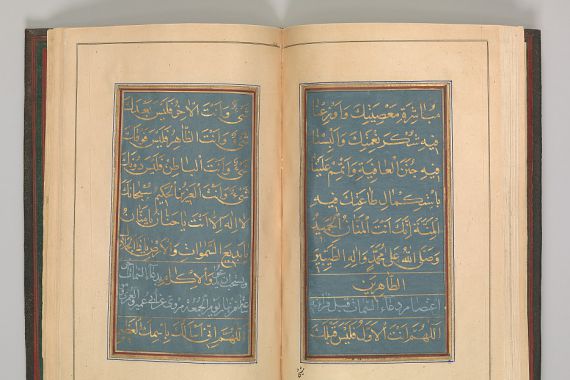 مباشرة معصيتك واوزعنا
فيه شكر نعمتك والبسنا
فيه جنن العافية واتمم علينا
باستكمال طاعتك فيه
المنة انك انت المنان الحميد
وصلى الله على محمد واله الطيبين
الطاهرين
دعاء السمات قبل
اللهم انت الاول فليس قبلك
شيء وانت الاخر فليس بعدك
شيء وانت الظاهر فليس فوقك
شيء وانت الباطن فليس دونك
شيء وانت العزيز الحكيم سبحانك
لا اله الا انت يا حنان يا منان
يا بديع السموات والارض يا ذا الجلال
والاكرام
يوم الجمعة
اللهم اني اسالك باسمك العظيم